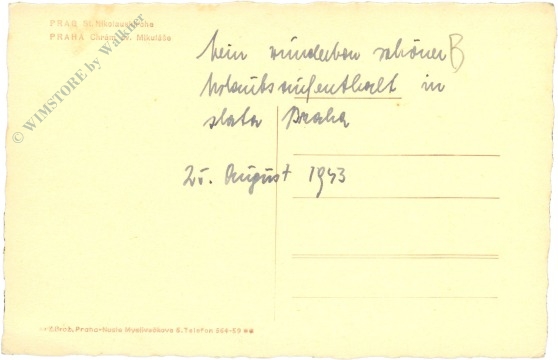 PRAG St. Nikolauskirche
PRAHA Chrám sv. Mikuláše
© WIMSTORE by Walkner
Mein wunderbar schöner B
Urlaubsaufenthalt in
slata Praha
25. August 1943
Praha-Nusle Myslivečkova 5. Telefon 564-59